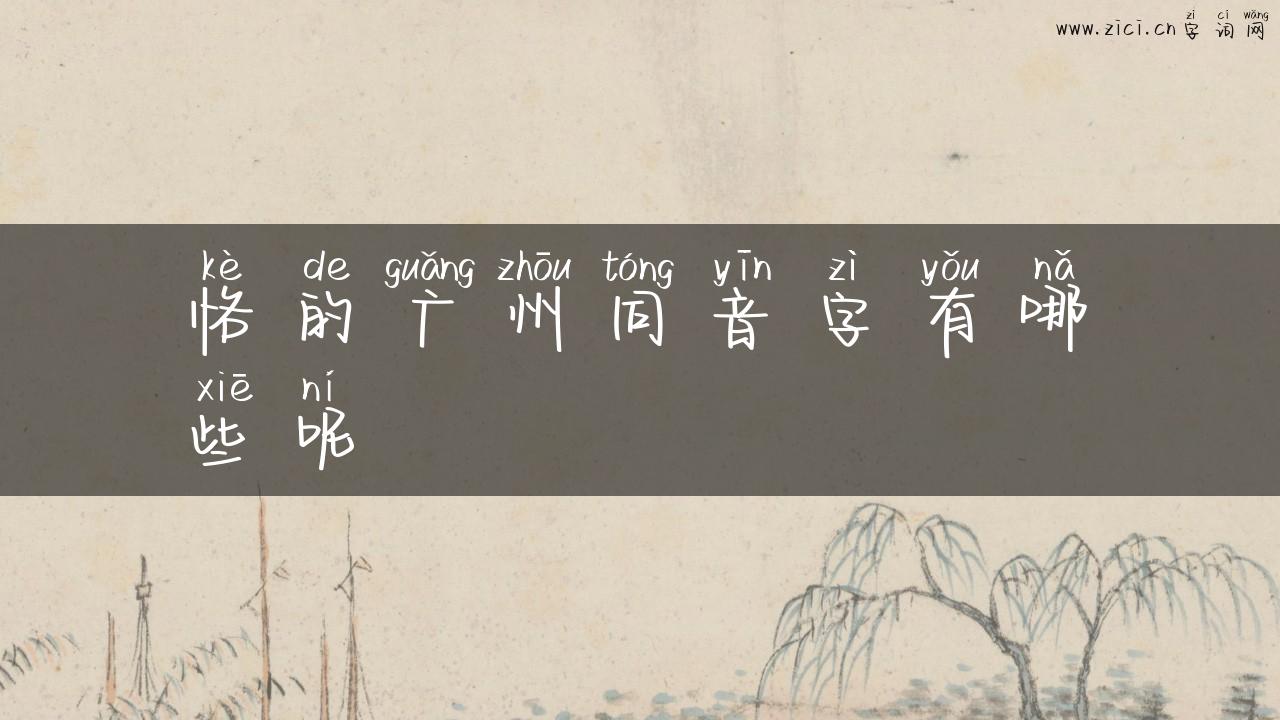 zì cí wǎng
www.zici.cn字词网
kè de guǎng zhōu tóng yīn zì yǒu nǎ
恪的广州同音字有哪
xiē ní
些呢